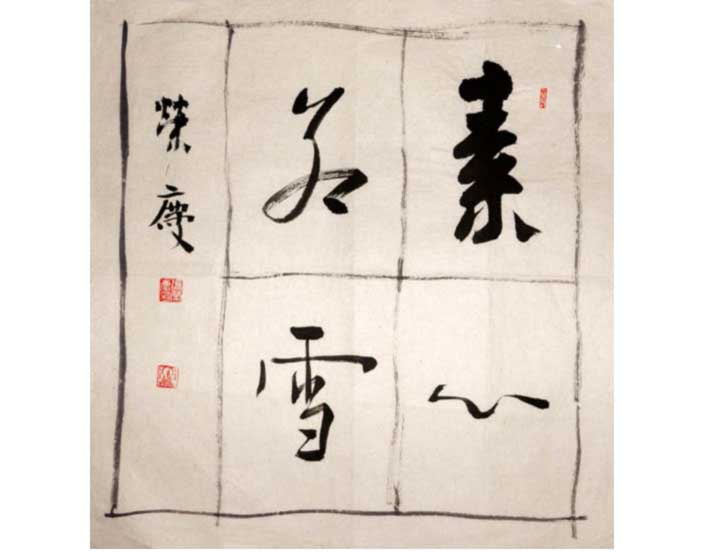 素心
若雪
荣庆